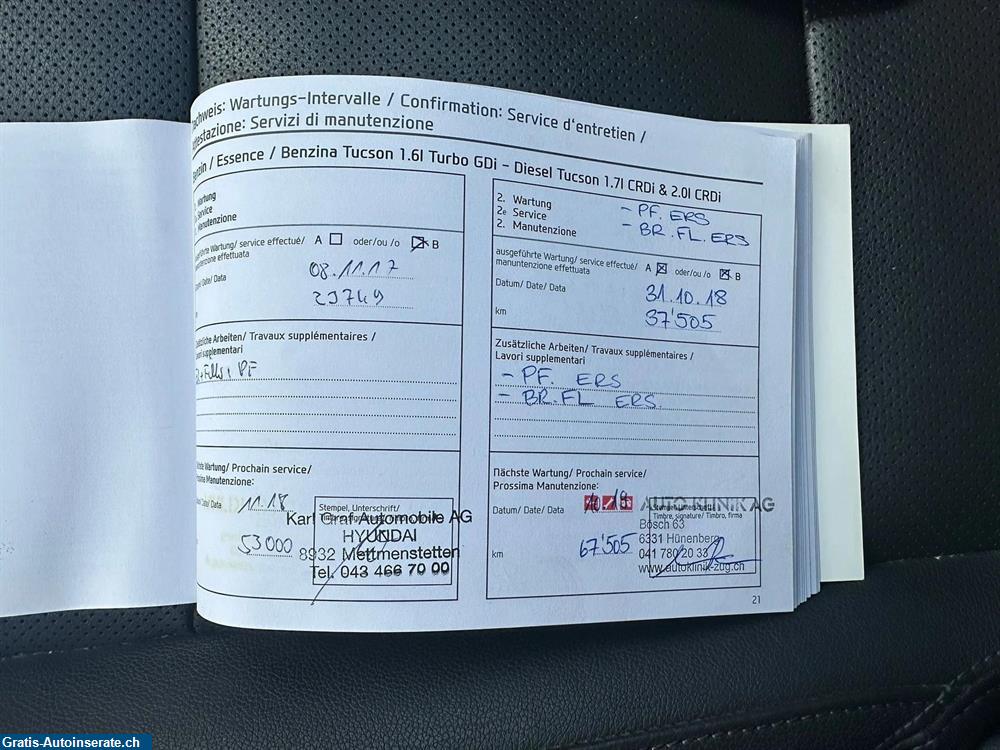 chweis: Wartungs-Intervalle / Confirmation: Service d'entretien /
testazione: Servizi di manutenzione
Benzin / Essence / Benzina Tucson 1.6l Turbo GDi - Diesel Tucson 1.7l CRDi & 2.0l CRDi
Wartung
Service
Manutenzione
ausgeführte Wartung/ service effectué/ A oder/ou /o B
manuntenzione effettuata
Date/ Data
08.11.17
29749
Zusätzliche Arbeiten/ Travaux supplémentaires /
Lavori supplementari
PF
Wartung/ Prochain service/
Prossima Manutenzione:
Date/ Data 11.18
53000
Stempel, Unterschrift/
Karl Graf Automobile AG
HYUNDAI
8932 Mettmenstetten
Tel. 043 466 70 00
2. Wartung - PF. ERS
2e Service - BR.FL.ERS
2. Manutenzione
ausgeführte Wartung/ service effectué/ A oder/ou /o B
manuntenzione effettuata
Datum/ Date/ Data 31.10.18
km 37'505
Zusätzliche Arbeiten/ Travaux supplémentaires /
Lavori supplementari
- PF. ERS
- BR.FL ERS.
Nächste Wartung/ Prochain service/
Prossima Manutenzione:
Datum/ Date/ Data 10.19 AUTO KLINIK AG
Stempel, Unterschrift/
Timbre, signature/ Timbro, firma
Bösch 63
6331 Hünenberg
km 67'505 041 780 20 33
www.autoklinik-zug.ch
21
Gratis-Autoinserate.ch